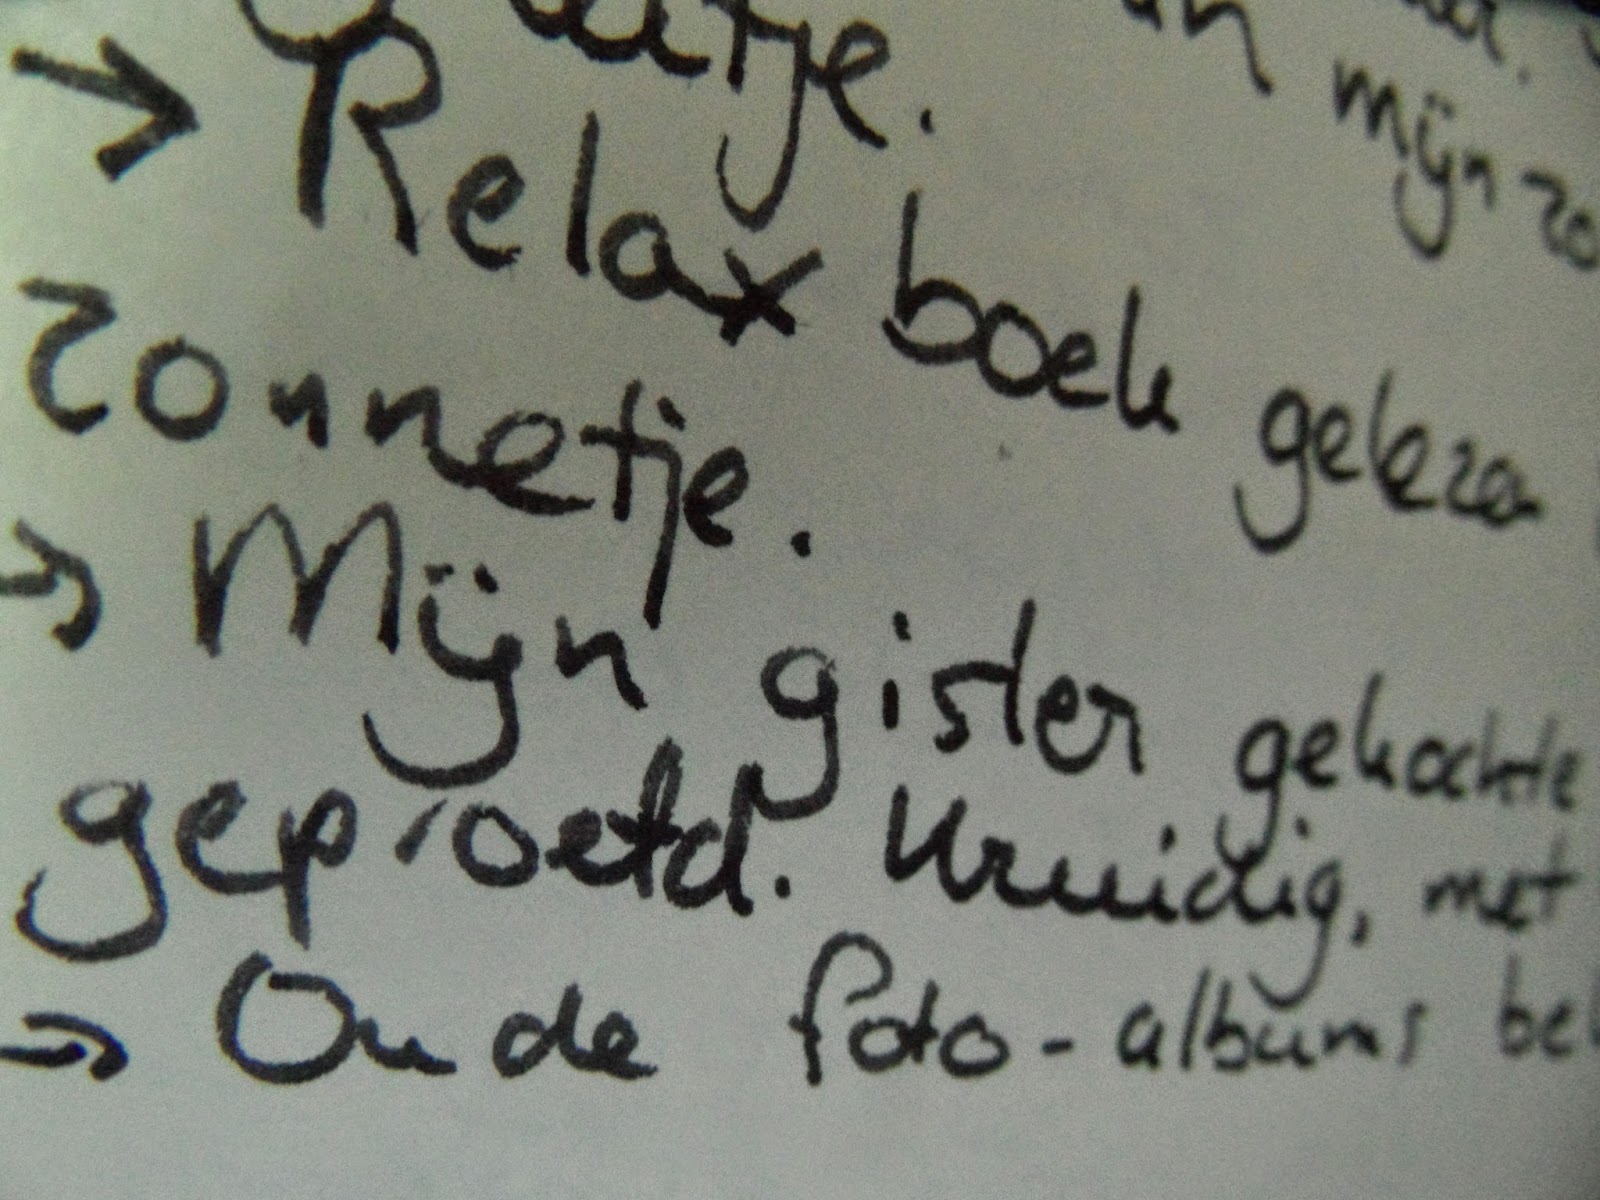 mijn zo
→ Relax boek gelezen
zonnetje.
→ Mijn gister gekochte
geproefd. Kruidig, met
→ Oude foto-albums be